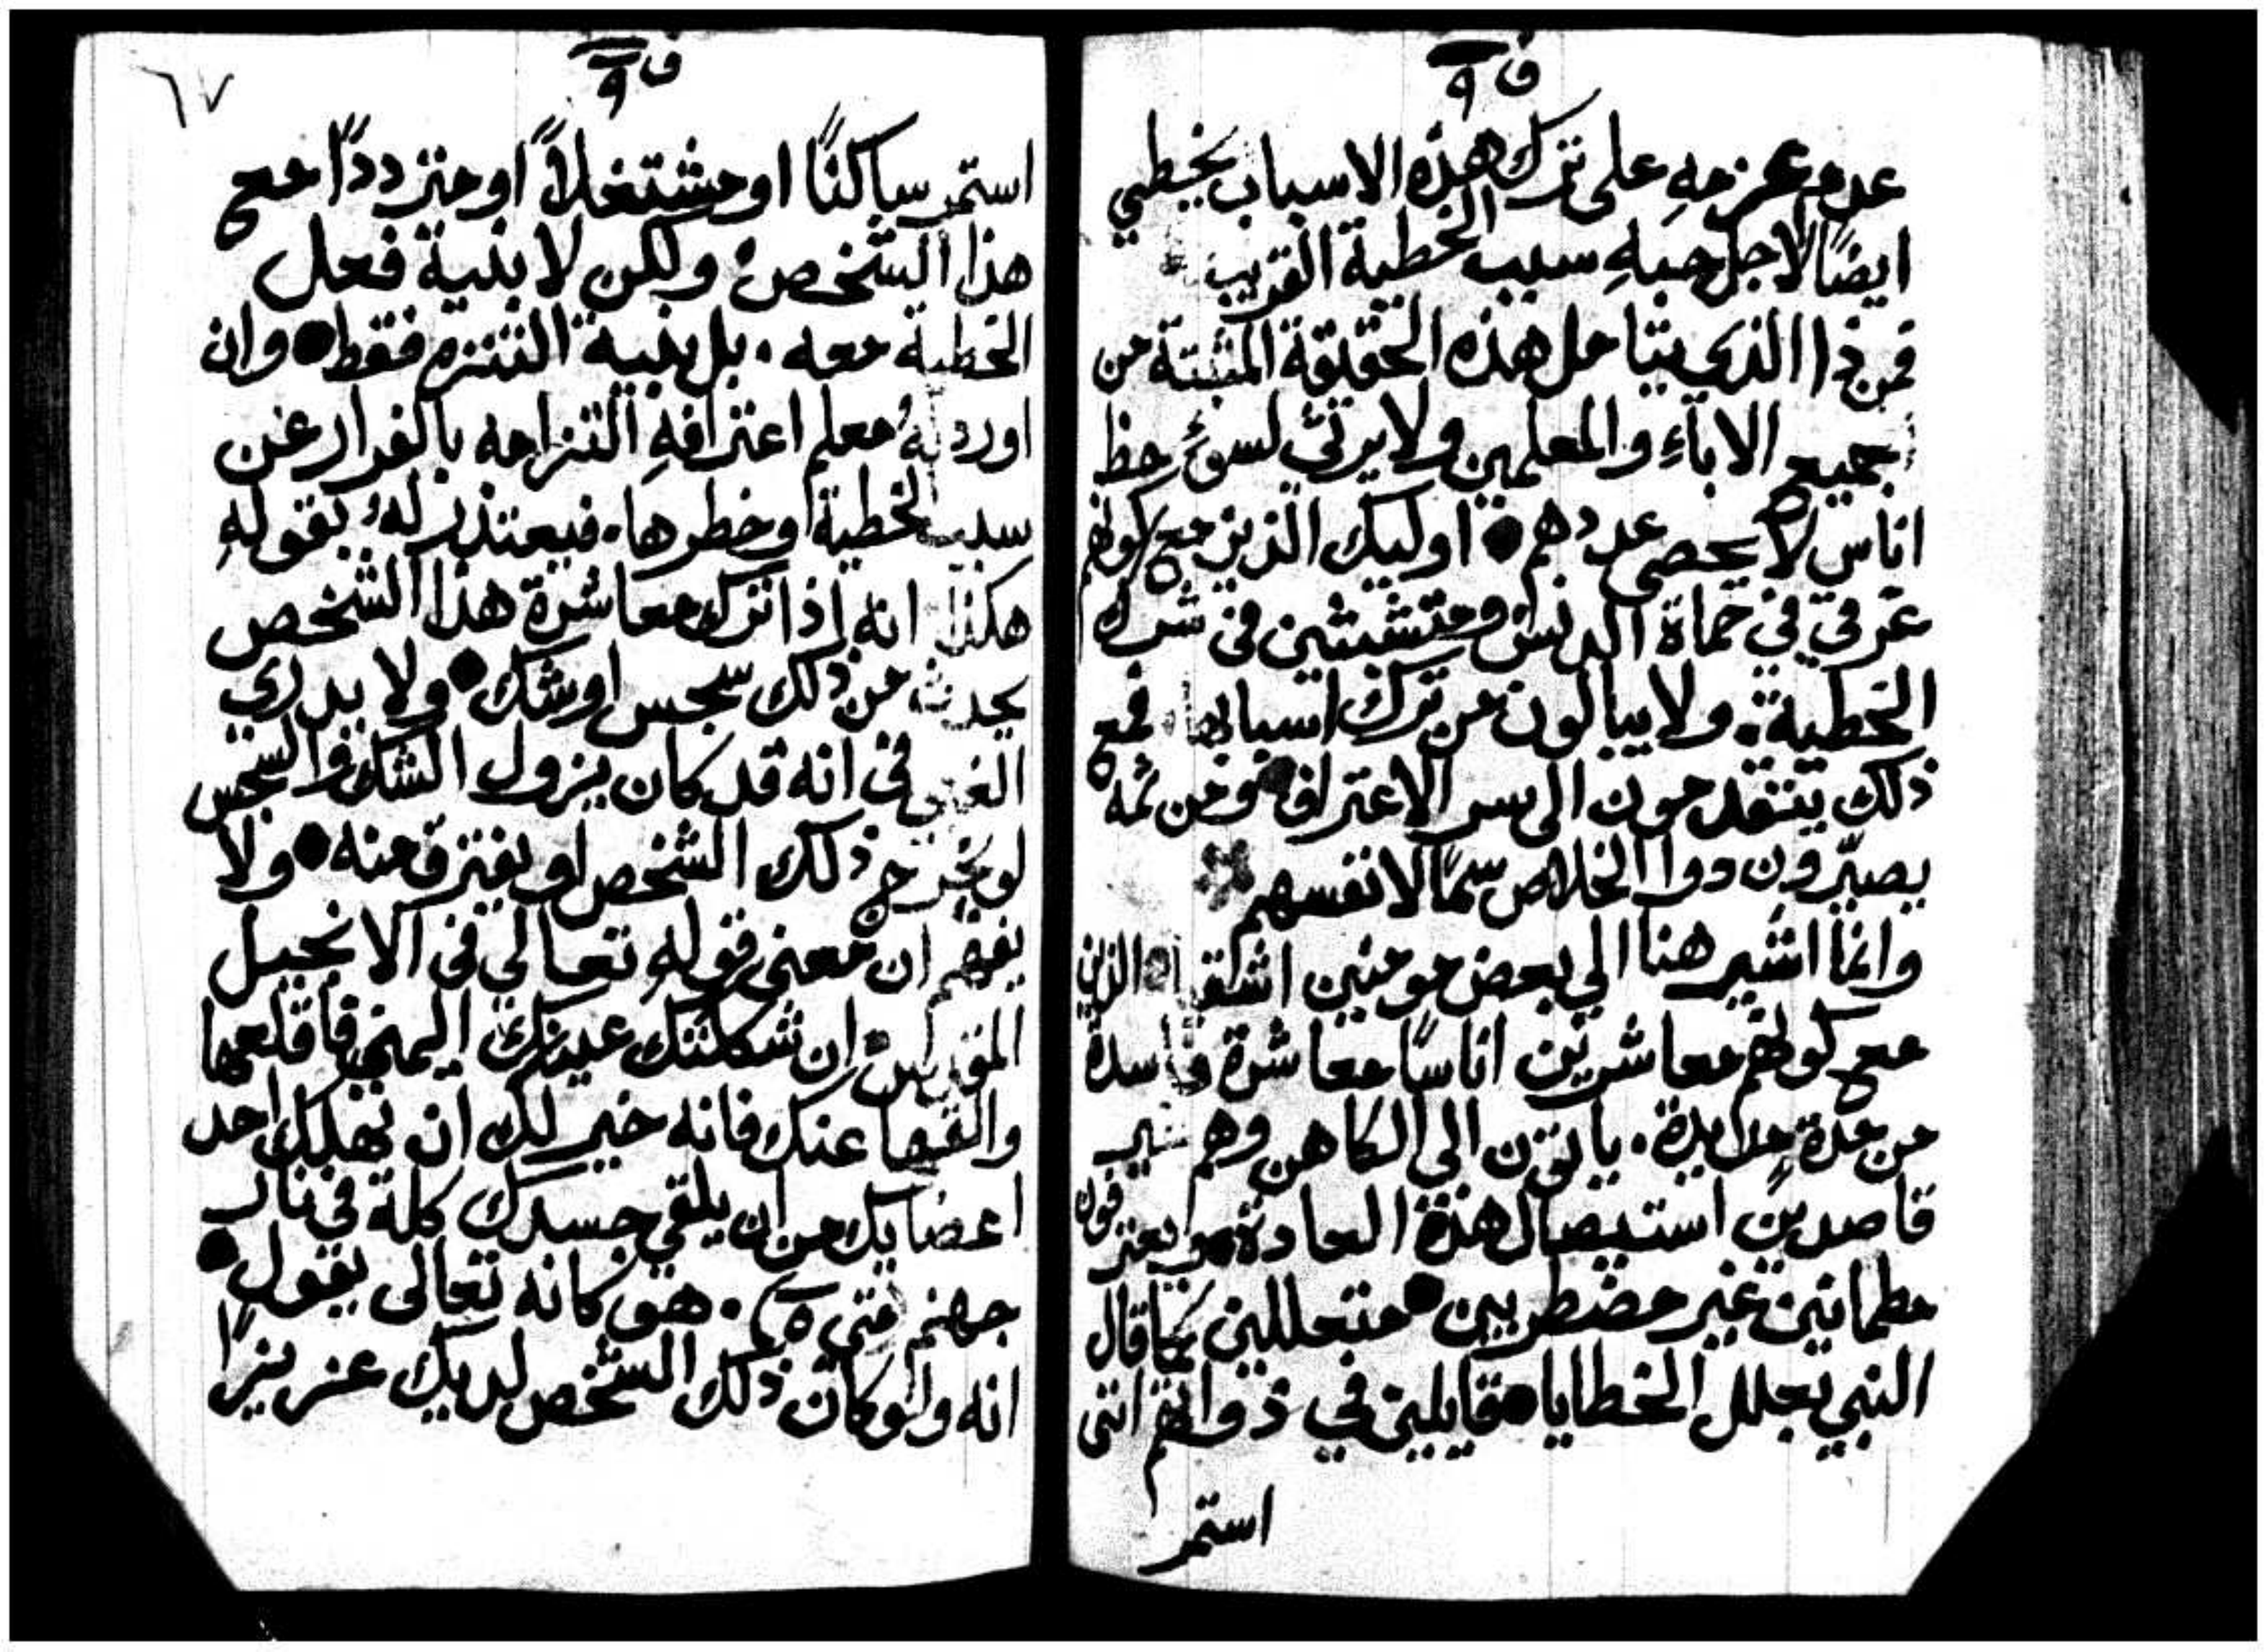 ف ٩
عدم عزمهِ على ترك هذه الاسباب يخطي
ايضًا لاجل حبهِ سبب الخطية القريب
فمن ذا الذي يتامل هذه الحقيقة المثبتة من
جميع الاباءِ والمعلمين ولا يرثي لسوءِ حظ
اناس لا يحصى عددهم ● اوليك الذين مع كونهم
غرقي في حماة الدنس ومتشبثين في شرك
الخطية. ولا يبالون من ترك اسبابها فمع
ذلك يتقدمون الى سر الاعتراف ومن ثمه
يصيّرون دوا الخلاص سمًا لانفسهم
وانما اشير هنا الي بعض مومنين اشقيا الذين
مع كونهم معاشرين اناسًا معاشرة فاسدة
من مدة مديدة. ياتون الي الكاهن وهم غير
قاصدين استيصال هذه العادة ويعترفون
مطمانين غير مضطربين ● متعللين كما قال
النبي بعلل الخطايا ● قايلين في ذواتهم انني
استمر
٦٧
ف ٩
استمر ساكنًا او مشتغلاً او مترددًا مع
هذا الشخص ولكن لا بنية فعل
الخطية معه. بل بنية التنزه فقط ● وان
اورد لهُ معلم اعترافهِ التزامه بالفرار عن
سبب الخطية وخطرها. فيعتذر لهُ بقولهِ
هكذا انه اذا ترك معاشرة هذا الشخص
يحدث من ذلك سجس او شك ● ولا يدري
الغبي في انه قد كان يزول الشك والسجس
لو يخرج ذلك الشخص او يفترق منه ● ولا
يفهم ان معني قولهِ تعالي في الانجيل
المقدس ان شككتك عينك اليمني فاقلعها
والقيها عنك فانه خير لك ان تهلك احد
اعضايك من ان يلقي جسدك كله في نار
جهنم متي ٥. هو كانه تعالى يقول ●
انه ولو كان ذلك الشخص لديك عزيزًا